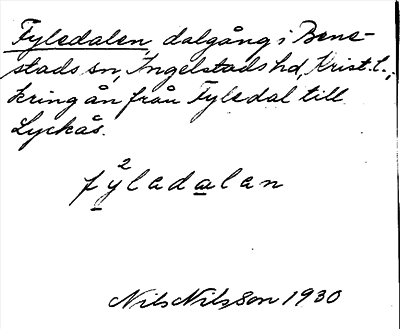 Fyledalen, dalgång i Bene-
stads sn, Ingelstads hd, Krist. l.,
kring ån från Fyledal till
Lyckås.
2
fyladalan
Nils Nilsson 1930